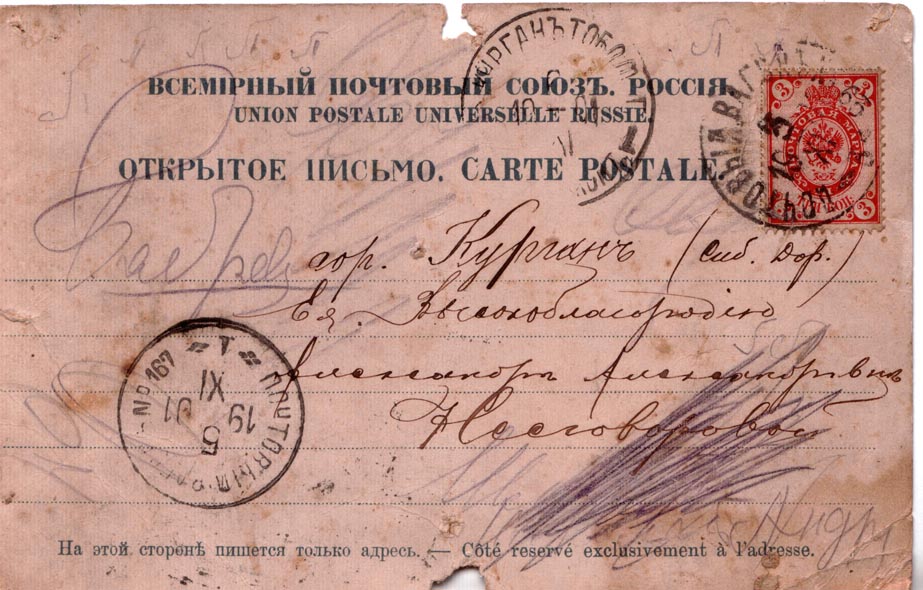 ВСЕМІРНЫЙ ПОЧТОВЫЙ СОЮЗЪ. РОССІЯ.
UNION POSTALE UNIVERSELLE RUSSIE.
ОТКРЫТОЕ ПИСЬМО. CARTE POSTALE.
КУРГАНЪ ТОБОЛ
ПОЧТОВЫЙ ВАГОНЪ
3 3
ПОЧТОВАЯ МАРКА
3 ТРИ КОП. 3
гор. Курганъ (Сиб. Дор.)
Ея Высокоблагородію
Александрѣ Александровнѣ
Несговоровой
ПОЧТОВЫЙ ВАГ. No 167
1
5
19 XI 01
Андр
На этой сторонѣ пишется только адресъ. — Côté reservé exclusivement à l'adresse.